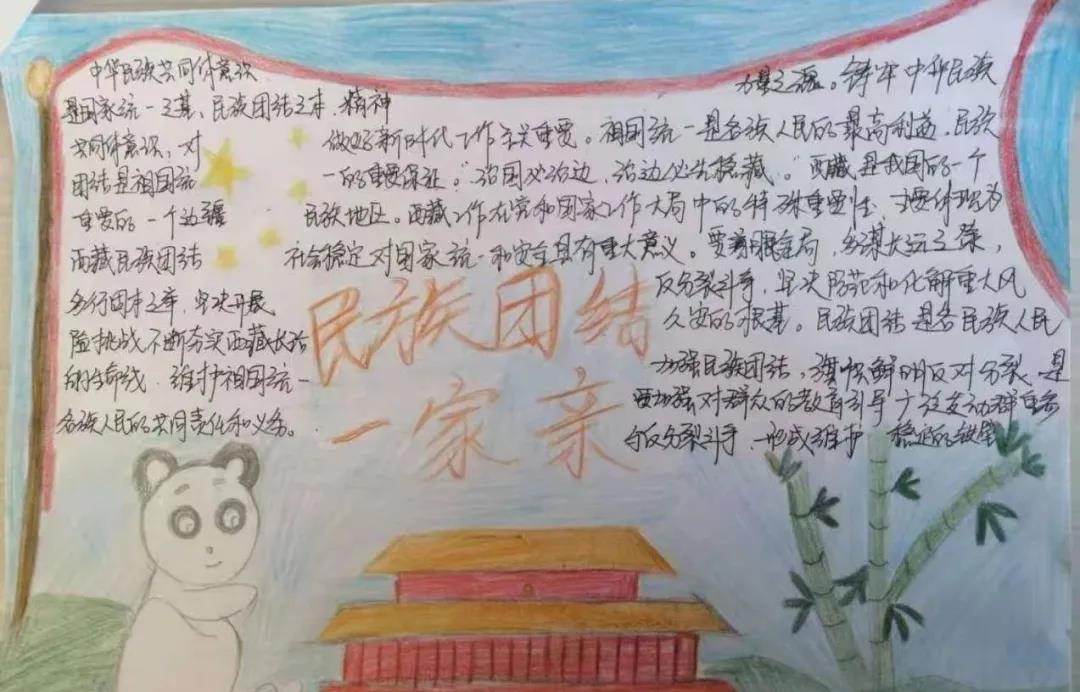 中华民族共同体意识
是国家统一之基、民族团结之本、精神 力量之魂。铸牢中华民族
共同体意识,对 做好新时代工作至关重要。祖国统一是各族人民的最高利益,民族
团结是祖国统 一的重要保证。"治国必治边,治边必先稳藏。"西藏是我国的一个
重要的一个边疆 民族地区。西藏工作在党和国家工作大局中的特殊重要性,主要体现为
西藏民族团结 社会稳定对国家统一和安全具有重大意义。要着眼全局,多谋长远之策,
多行固本之举,坚决开展 反分裂斗争,坚决防范和化解重大风
险挑战,不断夯实西藏长治 久安的根基。民族团结是各民族人民
的生命线,维护祖国统一 加强民族团结,旗帜鲜明反对分裂,是
各族人民的共同责任和义务。 要加强对群众的教育引导广泛发动群众参
与反分裂斗争,形成维护 稳定的
民族团结
一家亲